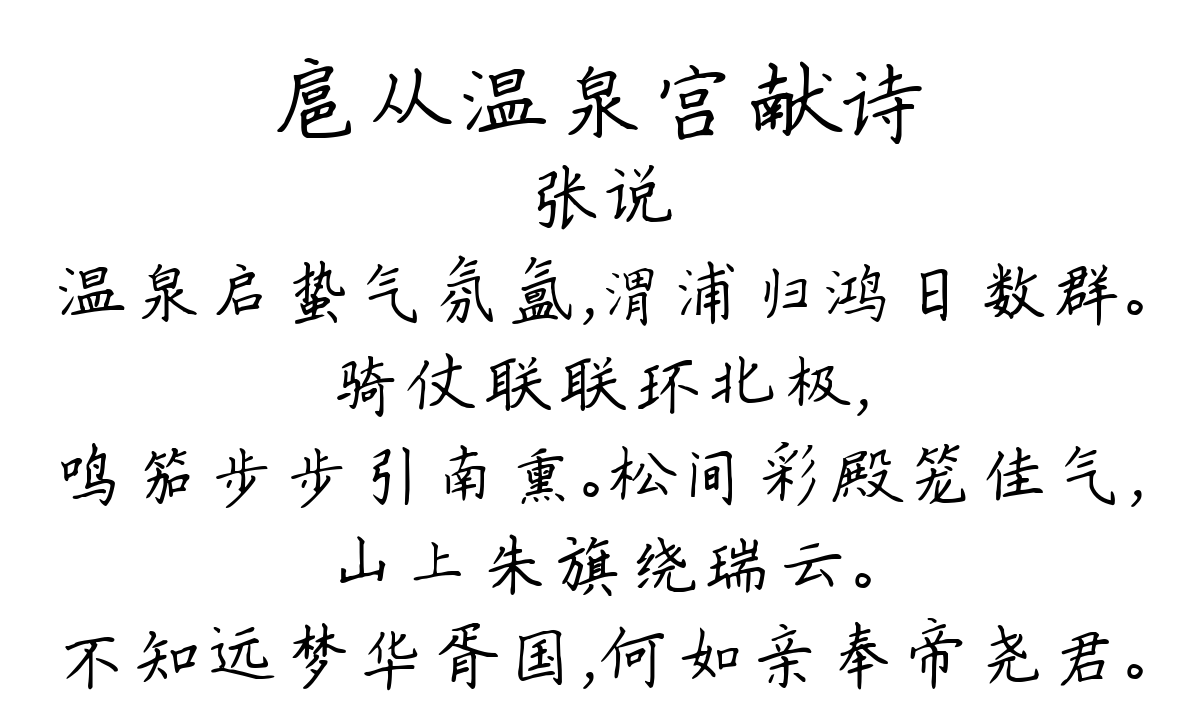 扈从温泉宫献诗
张说
温泉启蛰气氛氲,渭浦归鸿日数群。
骑仗联联环北极,
鸣笳步步引南熏。松间彩殿笼佳气,
山上朱旗绕瑞云。
不知远梦华胥国,何如亲奉帝尧君。